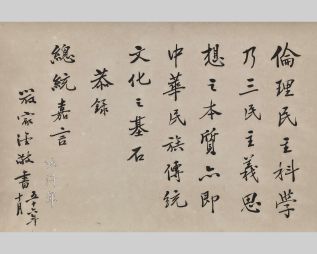 倫理民主科學
乃三民主義思
想之本質亦即
中華民族傳統
文化之基石
恭錄
總統嘉言
嚴家淦敬書
五十六年
十月